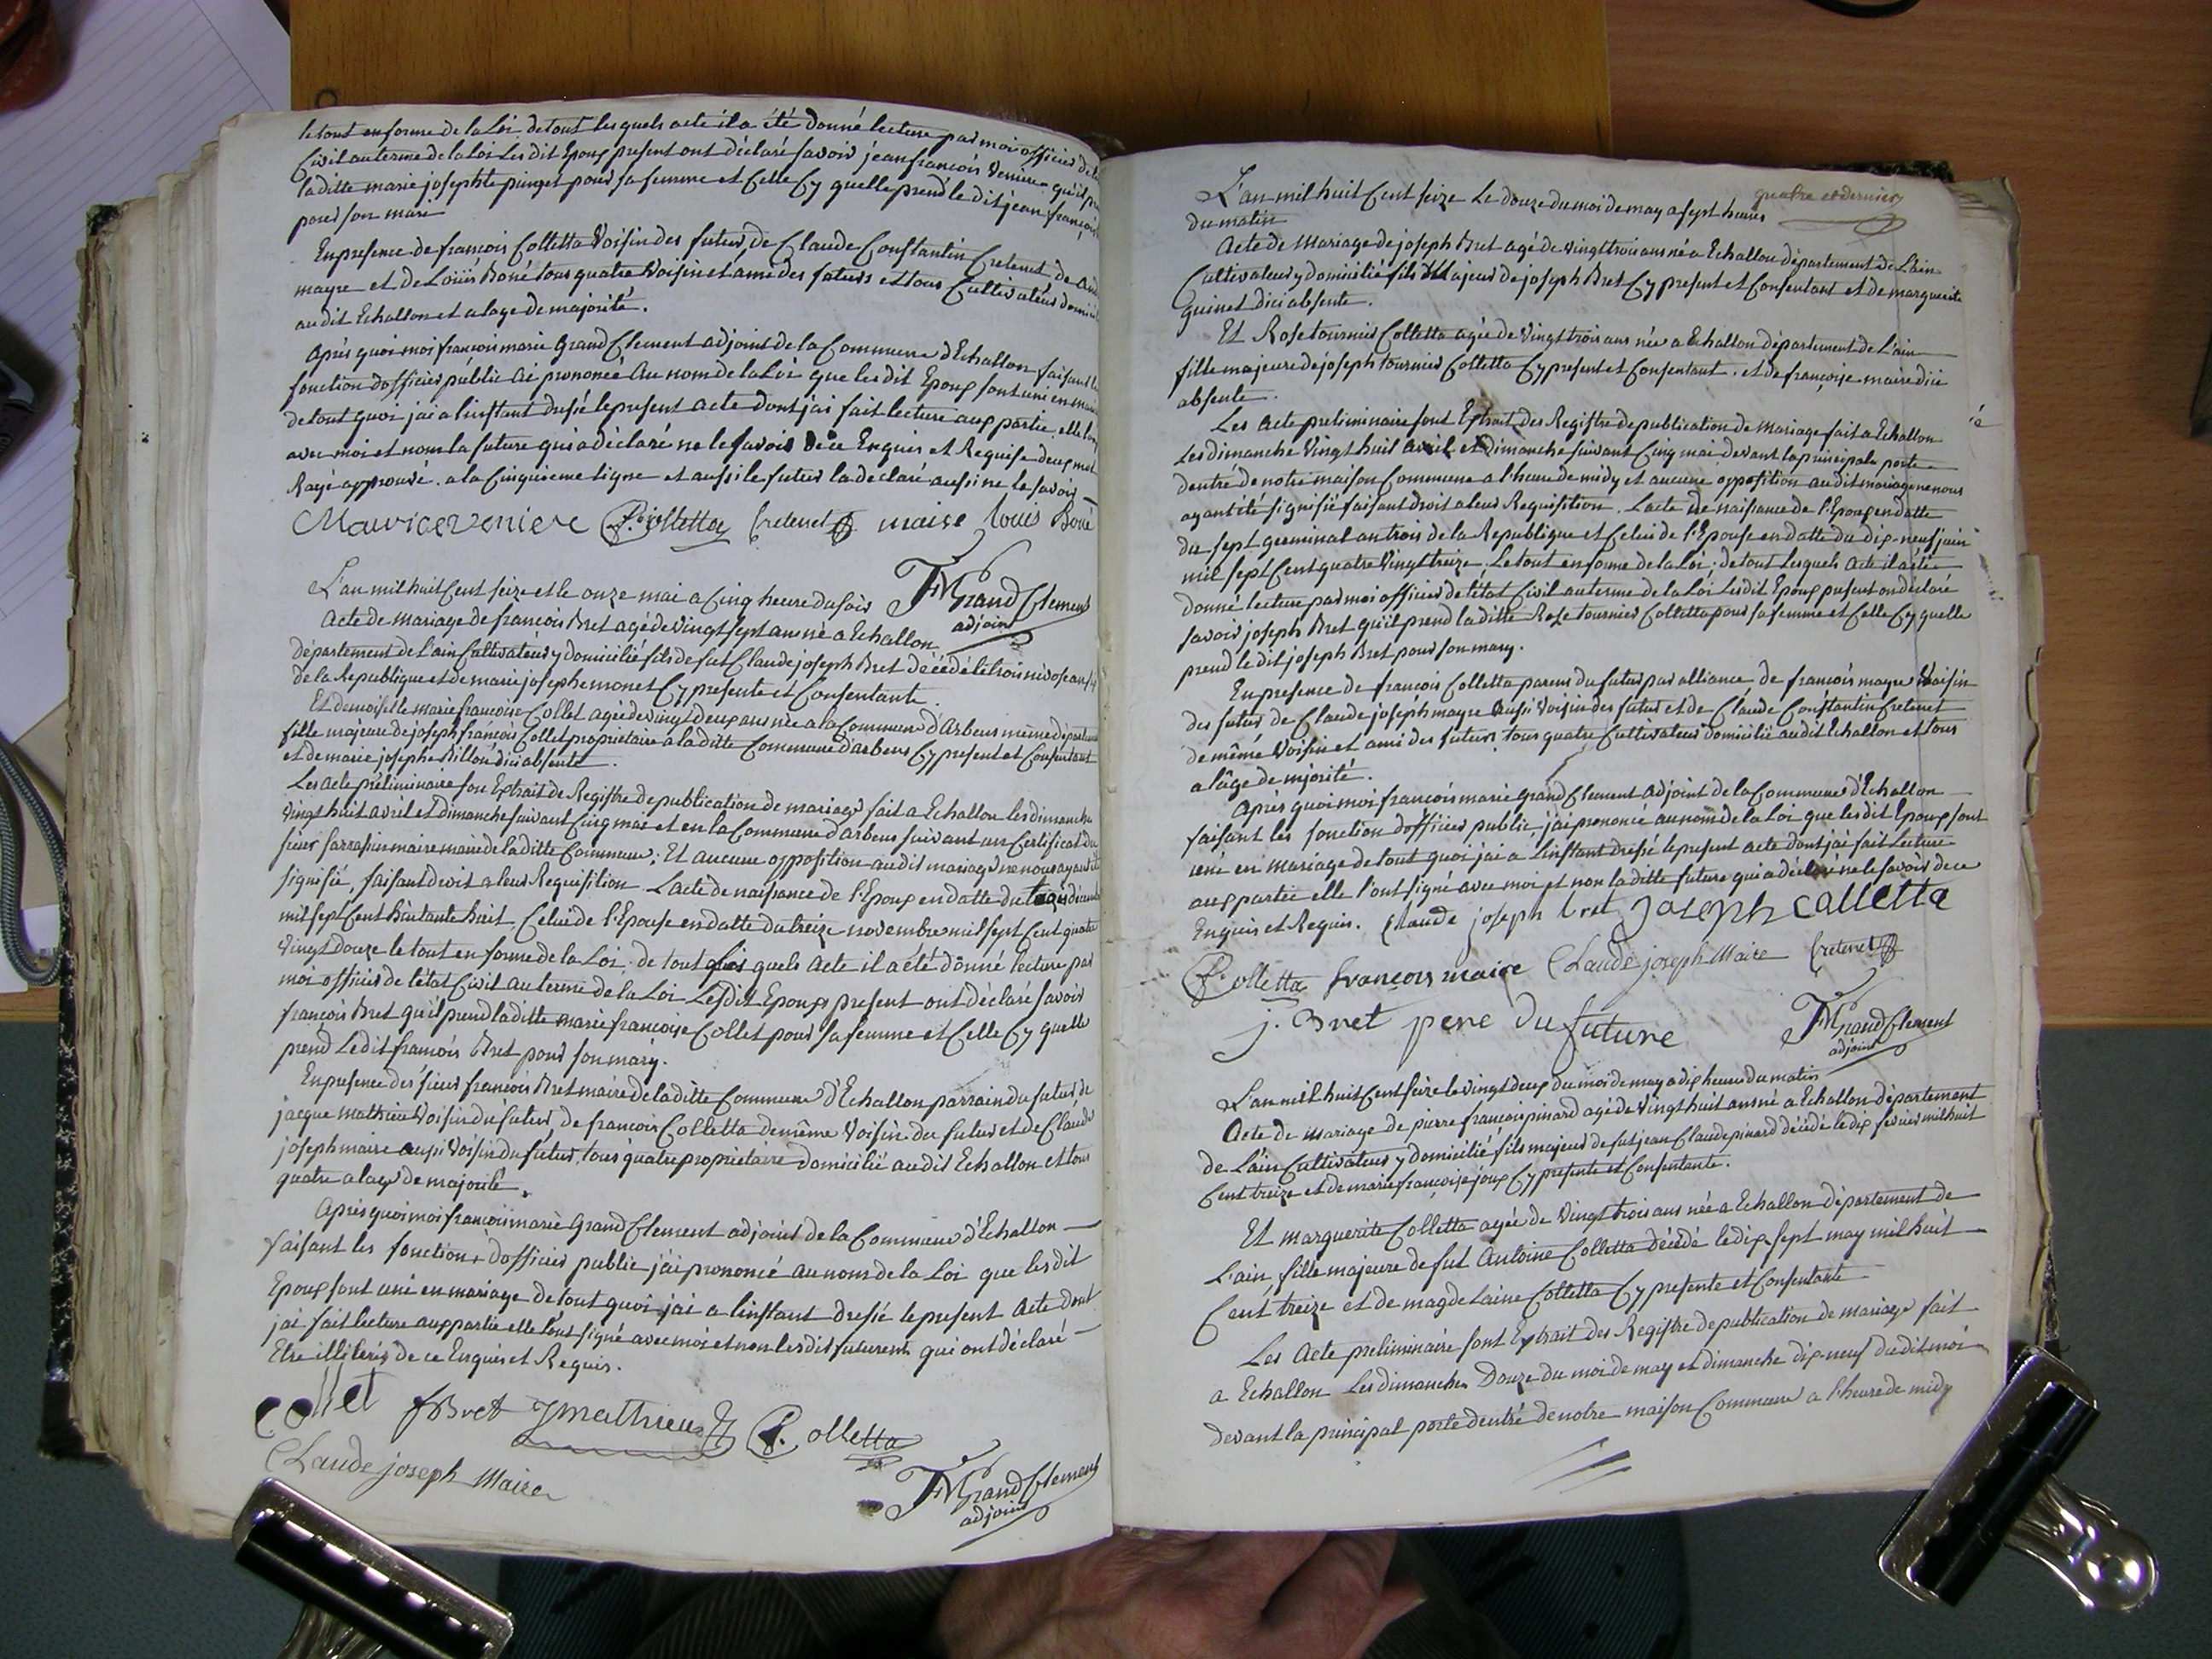 le tout en forme de la Loi. de tout les quels acte il a été donné lecture par moi officier de
Civil au terme de la Loi Les dit Epoux present ont déclaré savoir jean francois Veniere qu'il
laditte marie josephte pinget pour sa femme et Celle Cy quelle prend le dit jean francois
pour son mari
En presence de francois Colletta Voisin des futur, de Claude Constantin Cretenet de
mayre et de Louïs Boné tous quatre Voisin et ami des futurs et tous Cultivateurs
au dit Echallon et a lage de majorité.
Après quoi moi francois marie Grand Clement adjoint de la Commune d'Echallon faisant
fonction dofficier public ai prononcé Au nom de la Loi que les dit Epoux sont uni en
de tout quoi jai a linstant dressé le present acte dont jai fait lecture aux partie elle
avec moi et nom la future qui a déclaré ne le savoir de ce Enquis et Requise deux mot
Rayé approuvé. a la Cinquieme ligne et aussi le futur la déclaré aussi ne le savoir
Maurice veniere F. Colletta Cretenet maire Louis Boné
L'an mil huit Cent seize et le onze mai a Cinq heure du soir
FM Grand Clement
adjoint
Acte de Mariage de francois Bret agé de vingt sept ans né a Echallon
département de L'ain Cultivateur y domicilié fils de fut Claude joseph Bret décédé le trois nivose an
de la Republique et de marie josephe monet Cy presente et Consentante.
Et demoiselle marie francoise Collet agée de vingt deux ans née a la Commune d'Arbens même
fille majeure de joseph francois Collet proprietaire a laditte Commune darbens Cy present et Consentant
et de marie josephe Billon dici absente.
Les acte préliminaire son Extrait de Registre de publication de mariage fait a Echallon les dimanche
Vingt huit avril et dimanche suivant Cinq mai et en la Commune d'arbens suivant un Certificat du
sieur sarrasin maire de laditte Commune; Et aucune opposition audit mariage ne nous ayant
signifié, faisant droit a leur Requisition. L'acte de naissance de l'Epoux en datte du
mil sept Cent huitante huit. Celui de l'Epouse en datte du treize novembre mil sept Cent quatre
Vingt Douze le tout en forme de la Loi. de tout les quels acte il a été donné lecture par
moi officier de l'état Civil au terme de la Loi Les dit Epoux present ont déclaré savoir
francois Bret qu'il prend laditte marie francoise Collet pour sa femme et Celle Cy quelle
prend Ledit francois Bret pour son mary.
En presence des sieur francois Bret maire de laditte Commune d'Echallon parrain du futur, de
jacque mathieu Voisin du futur, de francois Colletta de même Voisin du futur et de Claude
joseph maire aussi Voisin du futur, tous quatre proprietaire domicilié audit Echallon et tous
quatre a lage de majorité.
Après quoi moi francois marie Grand Clement adjoint de la Commune d'Echallon
faisant les fonction, dofficier public jai prononcé au nom de la Loi que les dit
Epoux sont uni en mariage de tout quoi jai a linstant dressé le present Acte dont
jai fait lecture aux partie elle lont signé avec moi et non les dit futurent qui ont déclaré
Etre illiteris de ce Enquis et Requis.
Collet fBret J mathieu F. Colletta
Claude joseph Maire
FM Grand Clement
adjoint
quatre et dernier
L'an mil huit Cent seize Le douze du moi de may a sept heures
du matin
Acte de Mariage de joseph Bret agé de vingt trois ans né a Echallon département de L'ain
Cultivateur y domicilié fils Majeur de joseph Bret Cy present et Consentant et de marguerite
guinet dici absente.
Et Rose tournier Colletta agée de Vingt trois ans née a Echallon département de L'ain
fille majeure de joseph tournier Colletta Cy present et Consentant. et de francoise maire dici
absente.
Les Acte preliminaire sont Extrait des Registre de publication de Mariage fait a Echallon
Les dimanche Vingt huit avril et dimanche suivant Cinq mai devant la principale porte
dentré de notre maison Commune a l'heure de midy et aucune opposition au dit mariage ne nous
ayant été signifié faisant droit a leur Requisition. L'acte de naissance de l'Epoux en datte
du sept germinal an trois de la Republique et Celui de l'Epouse en datte du dix-neuf juin
mil sept Cent quatre Vingt treize. Le tout en forme de la Loi; de tout Lesquels Acte il a été
donné lecture par moi officier de l'état Civil au terme de la Loi Les dit Epoux present on déclaré
savoir joseph Bret qu'il prend laditte Rose tournier Colletta pour sa femme et Celle Cy quelle
prend le dit joseph Bret pour son mary.
En presence de francois Colletta parent du futur par alliance de francois mayre Voisin
des futur de Claude joseph mayre Aussi Voisin des futur et de Claude Constantin Cretenet
de même Voisin et ami des futurs, tous quatre Cultivateur domicilié audit Echallon et tous
a lâge de mjorité.
Après quoi moi francois marie Grand Clement adjoint de la Commune d'Echallon
faisant les fonction dofficier public, jai prononcé au nom de la Loi que les dit Epoux sont
uni en mariage de tout quoi jai a linstant dressé le present acte dont jai fait Lecture
aux partie elle l'ont signé avec moi et non laditte future qui a déclaré ne le savoir de ce
Enquis et Requis. Claude joseph bret Joseph Calletta
F. Colletta francois maire Claude joseph Maire Cretenet
j. Bret pere du future
FM Grand Clement
adjoint
L'an mil huit Cent seize le vingt deux du moi de may a dix heure du matin
Acte de Mariage de pierre francois pinard agé de Vingt huit ans né a Echallon département
de L'ain Cultivateur y domicilié fils majeur de fut jean Claude pinard décédé le dix fevrier mil huit
Cent treize et de marie francoise joux Cy presente et Consentante.
Et marguerite Colletta agée de vingt trois ans née a Echallon département de
L'ain, fille majeure de fut Antoine Colletta décédé le dix-sept may mil huit
Cent treize et de magdelaine Colletta Cy presente et Consentante
Les Acte preliminaire sont Extrait des Registre de publication de mariage fait
a Echallon Les dimanche Douze du moi de may et dimanche dix-neuf du dit moi
devant la principal porte dentré de notre maison Commune a l'heure de midy